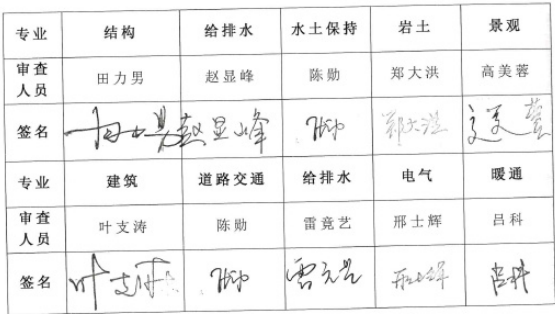 专业 结构 给排水 水土保持 岩土 景观
审查人员 田力男 赵显峰 陈勋 郑大洪 高美蓉
签名 田力男 赵显峰 陈勋 郑大洪 高美蓉
专业 建筑 道路交通 给排水 电气 暖通
审查人员 叶支涛 陈勋 雷竟艺 邢士辉 吕科
签名 叶支涛 陈勋 雷竟艺 邢士辉 吕科